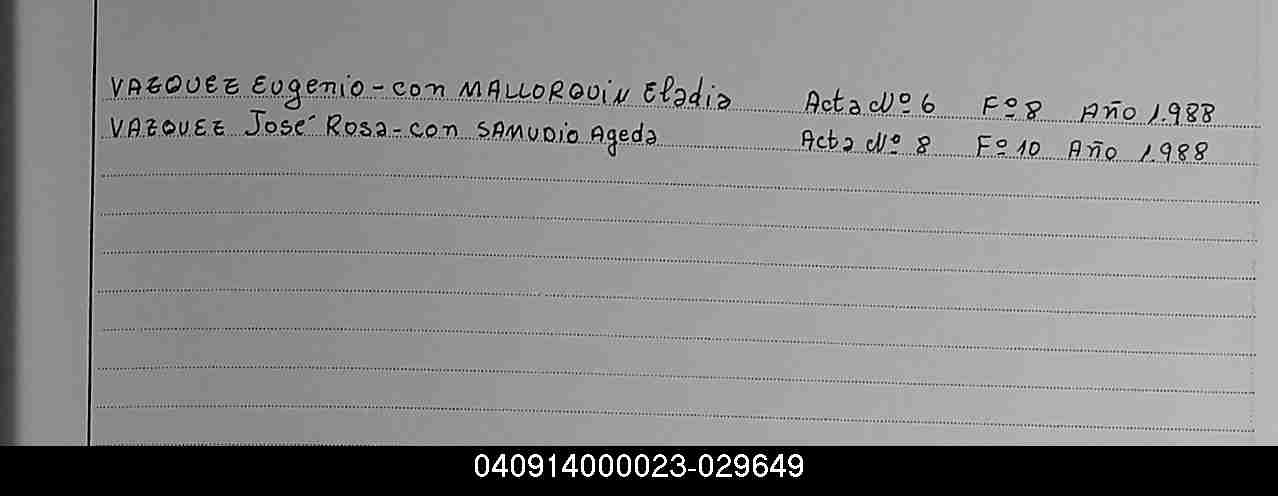 VAZQUEZ Eugenio - con MALLORQUiN Eladia Acta Nº 6 Fº 8 Año 1.988
VAZQUEZ José Rosa - con SAMUDio Ageda Acta Nº 8 Fº 10 Año 1988
040914000023-029649